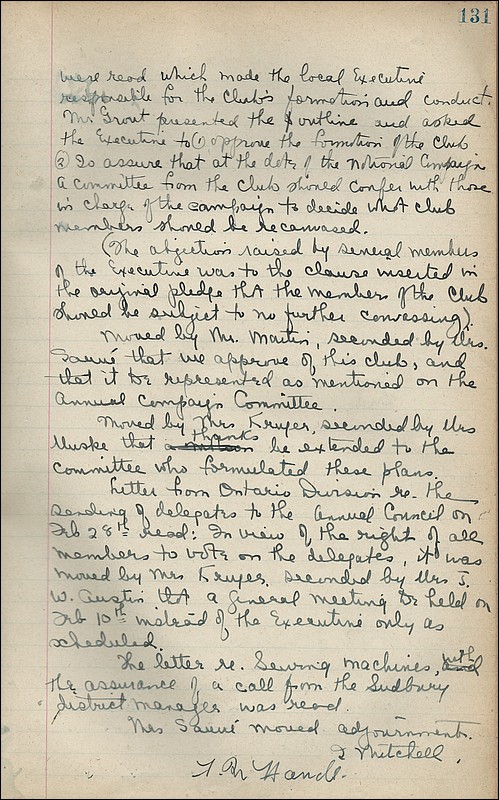 131
were read which made the local Executive
responsible for the Club's formation and conduct.
Mr. Grout presented the outline and asked
the Executive to (1) approve the formation of the Club
(2) To assure that at the date of the National Campaign
a committee from the Club should confer with those
in charge of the campaign to decide what club
members should be recanvassed.
(The objection raised by several members
of the Executive was to the clause inserted in
the original pledge that the members of the Club
should be subject to no further canvassing).
Moved by Mr. Martin, seconded by Mrs.
Sauvé that we approve of this club, and
that it be represented as mentioned on the
Annual Campaign Committee.
Moved by Mrs Kruger, seconded by Mrs
Muske that thanks be extended to the
committee who formulated these plans.
Letter from Ontario Division re. the
sending of delegates to the Annual Council on
Feb 28th read: In view of the right of all
members to vote on the delegates, it was
moved by Mrs Kruger, seconded by Mrs J.
W. Austin that a general meeting be held on
Feb 10th instead of the Executive only as
scheduled.
The letter re. Sewing machines, with
the assurance of a call from the Sudbury
district manager was read.
Mrs Sauvé moved adjournment.
Mitchell.